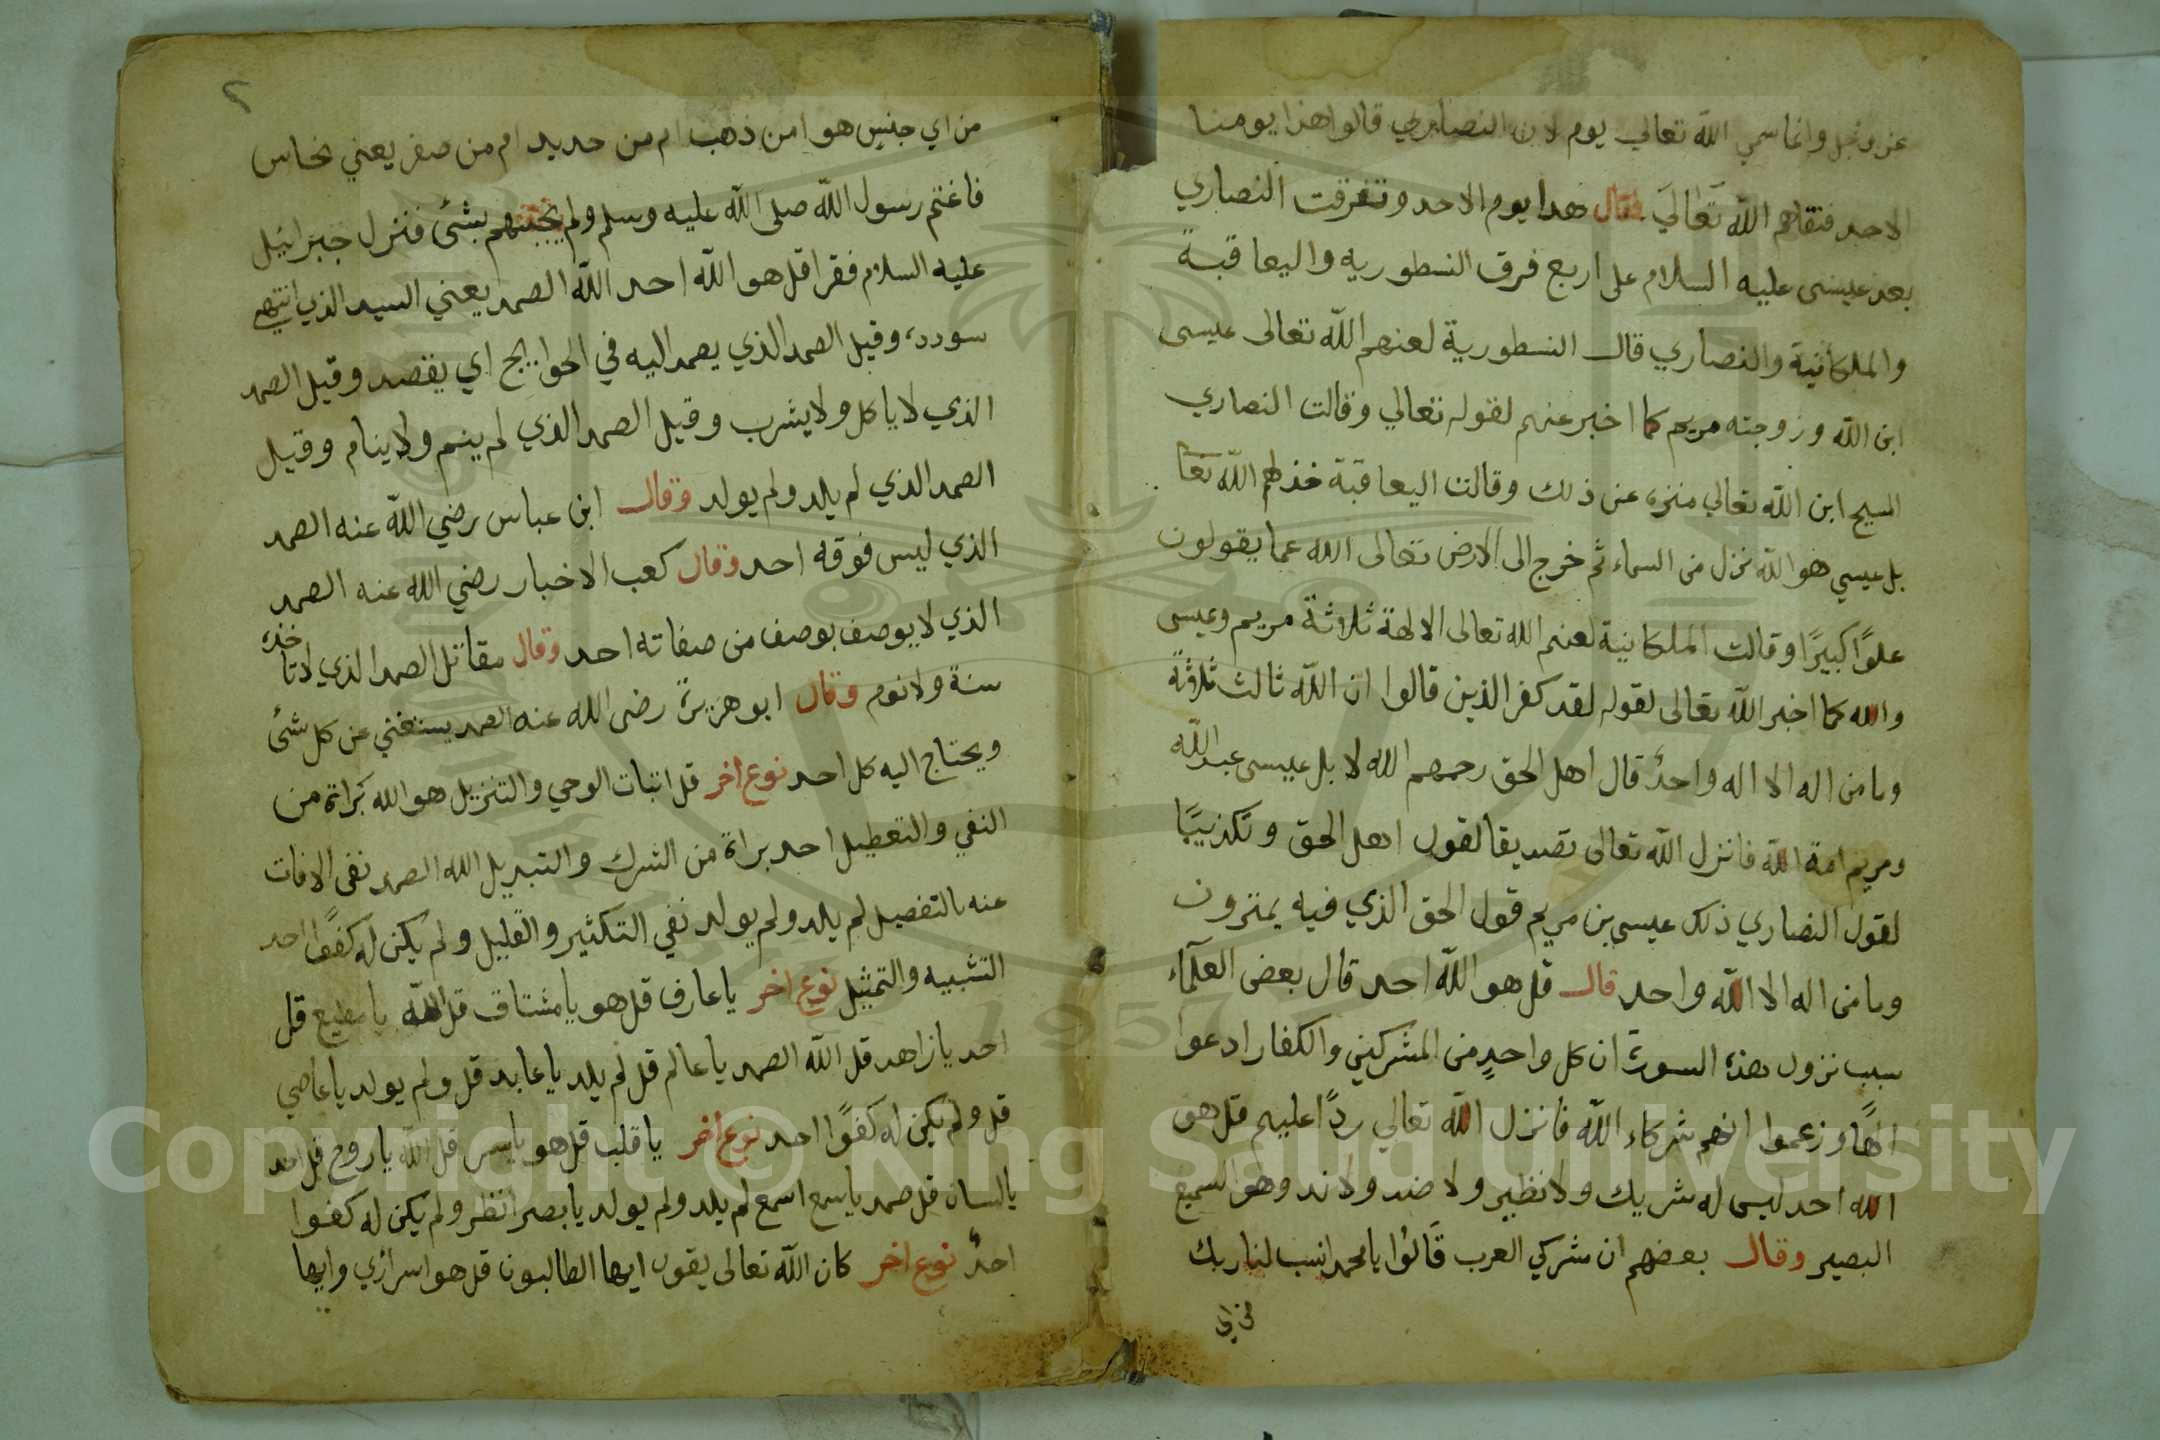 عز وجل وانما سمي الله تعالي يوم لان النصاري قالوا هذا يومنا
الاحد فنقلهم الله تعالي فقال هدا يوم الاحد وتفرقت النصاري
بعد عيسى عليه السلام على اربع فرق النسطوريه واليعاقبة
والملكانية والنصاري قالـ النسطورية لعنهم الله تعالى عيسى
ابن الله وزوجته مريم كما اخبر عنهم لقوله تعالي وقالت النصاري
المسيح ابن الله تعالي منزه عن ذلك وقالت اليعاقبة خذلهم الله تعا
بل عيسي هو الله نزل من السماء ثم خرج الى الارض تعالى الله عما يقولون
علوًا كبيرًا وقالت الملكانية لعنهم الله تعالى الالهة ثلاثة مريم وعيسى
والله كما اخبر الله تعالى لقوله لقد كفر الذين قالوا ان الله ثالث ثلاثة
وما من اله الا اله واحدٌ قال اهل الحق رحمهم الله لا بل عيسى عبد الله
ومريم امة الله فانزل الله تعالى تصديقا لقول اهل الحق وتكذيبًا
لقول النصاري ذلك عيسى بن مريم قول الحق الذي فيه يمترون
وما من اله الا الله واحد قالـ قل هو الله احد قال بعض العلماء
سبب نزول هذه السورة ان كل واحدٍ من المشركين والكفار ادعوا
الهًا وزعموا انهم شركاء الله فانزل الله تعالي ردًا عليهم قل هو
الله احد ليس له شريك ولا نظير ولا ضد ولا ند وهو السميع
البصير وقالـ بعضهم ان مشركي العرب قالوا يا محمد انسب لنا ربك
من اي
٢
من اي جنس هو امن ذهب ام من حديد ام من صفر يعني نحاس
فاغتم رسول الله صلى الله عليه وسلم ولم يجبهم بشئ فنزل جبرائيل
عليه السلام فقرا قل هو الله احد الله الصمد يعني السيد الذي انتهى
سودده وقيل الصمد الذي يصمد اليه في الحوايج اي يقصد وقيل الصمد
الذي لا ياكل ولا يشرب وقيل الصمد الذي لم ينم ولا ينام وقيل
الصمد الذي لم يلد ولم يولد وقالـ ابن عباس رضي الله عنه الصمد
الذي ليس فوقه احد وقال كعب الاخبار رضي الله عنه الصمد
الذي لا يوصف بوصف من صفاته احد وقال مقاتل الصمد الذي لا تا
خذه
سنة ولا نوم وقال ابو هريرة رضى الله عنه الصمد يستغني عن كل شئ
ويحتاج اليه كل احد نوع اخر قل اثبات الوحي والتنزيل هو الله براة من
النفي والتعطيل احد براة من الشرك والتبديل الله الصمد نفى الافات
عنه بالتفصيل لم يلد ولم يولد نفي التكثير والقليل ولم يكن له كفوًا احد
التشبيه والتمثيل نوع اخر يا عارف قل هو يا مشتاق قل الله يا مطيع قل
احد يا زاهد قل الله الصمد يا عالم قل لم يلد يا عابد قل ولم يولد يا عاصي
قل ولم يكن له كفوًا احد نوع اخر يا قلب قل هو يا سر قل الله يا روح قل احد
يا لسان قل صمد يا سمع اسمع لم يلد ولم يولد يا بصر انظر ولم يكن له كفوا
احدٌ نوع اخر كان الله تعالى يقول ايها الطالبون قل هو اسراري وايها
Copyright © King Saud University
1957